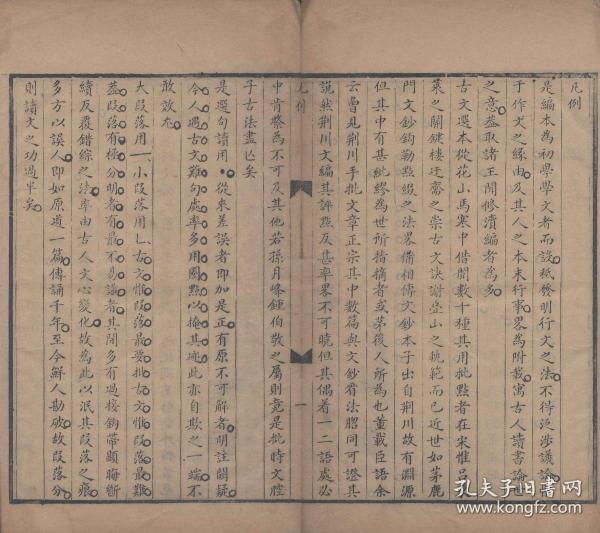 凡例
是編本為初學學文者而設祇發明行文之法不待泛涉議論
于作文之緣由及其人之本末行事畧為附載寓古人讀書論
之意蓋取諸王聞修瀆編者為多
古文選本從花山馬寒中借閱數十種其用批點者在宋惟呂
萊之關鍵樓迂齋之崇古文訣謝疊山之軌範而已近世如茅鹿
門文鈔鈎勒點綴之法畧備相傳文鈔本子出自荆川故有淵源
但其中有甚紕繆為世所指摘者或茅後人所為也董載臣語余
云曾見荆川手批文章正宗其中數篇與文鈔看法脗同可證其
說然荆川文編其評點反甚率畧不可曉但其偶着一二語處必
中肯綮為不可及其他若孫月峰鍾伯敬之屬則竟是批時文腔
子古法盡亡矣
凡例
一
是選句讀用。從來差誤者即加是正有原不可解者明註闕疑
令人遇古文難句處率多用圈點以掩其疵此亦自欺之一端不
敢效尤
大段落用一小段落用乚古文惟段落最要批古文惟段落最難
蓋段落有極分明者有最不易識者其間多有過接鈎帶顯晦斷
續反覆錯綜之法率由古人文心變化故為此以泯其段落之痕
多方以誤人即如原道一篇傳誦千年至今鮮人勘破故段落分
則讀文之功過半矣
孔夫子旧书网
www.kongfz.com